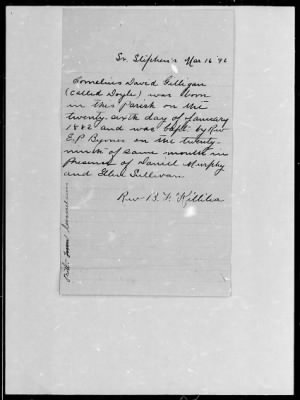 St. Stephen's Mar 16 92
Cornelius David Gilligan
(called Doyle) was born
in this parish on the
twenty-sixth day of January
1882 and was bapt. by Rev
E.P Byrnes on the twenty-
ninth of same month in
presence of Daniel Murphy
and Ellen Sullivan
Rev B. F. Killilea